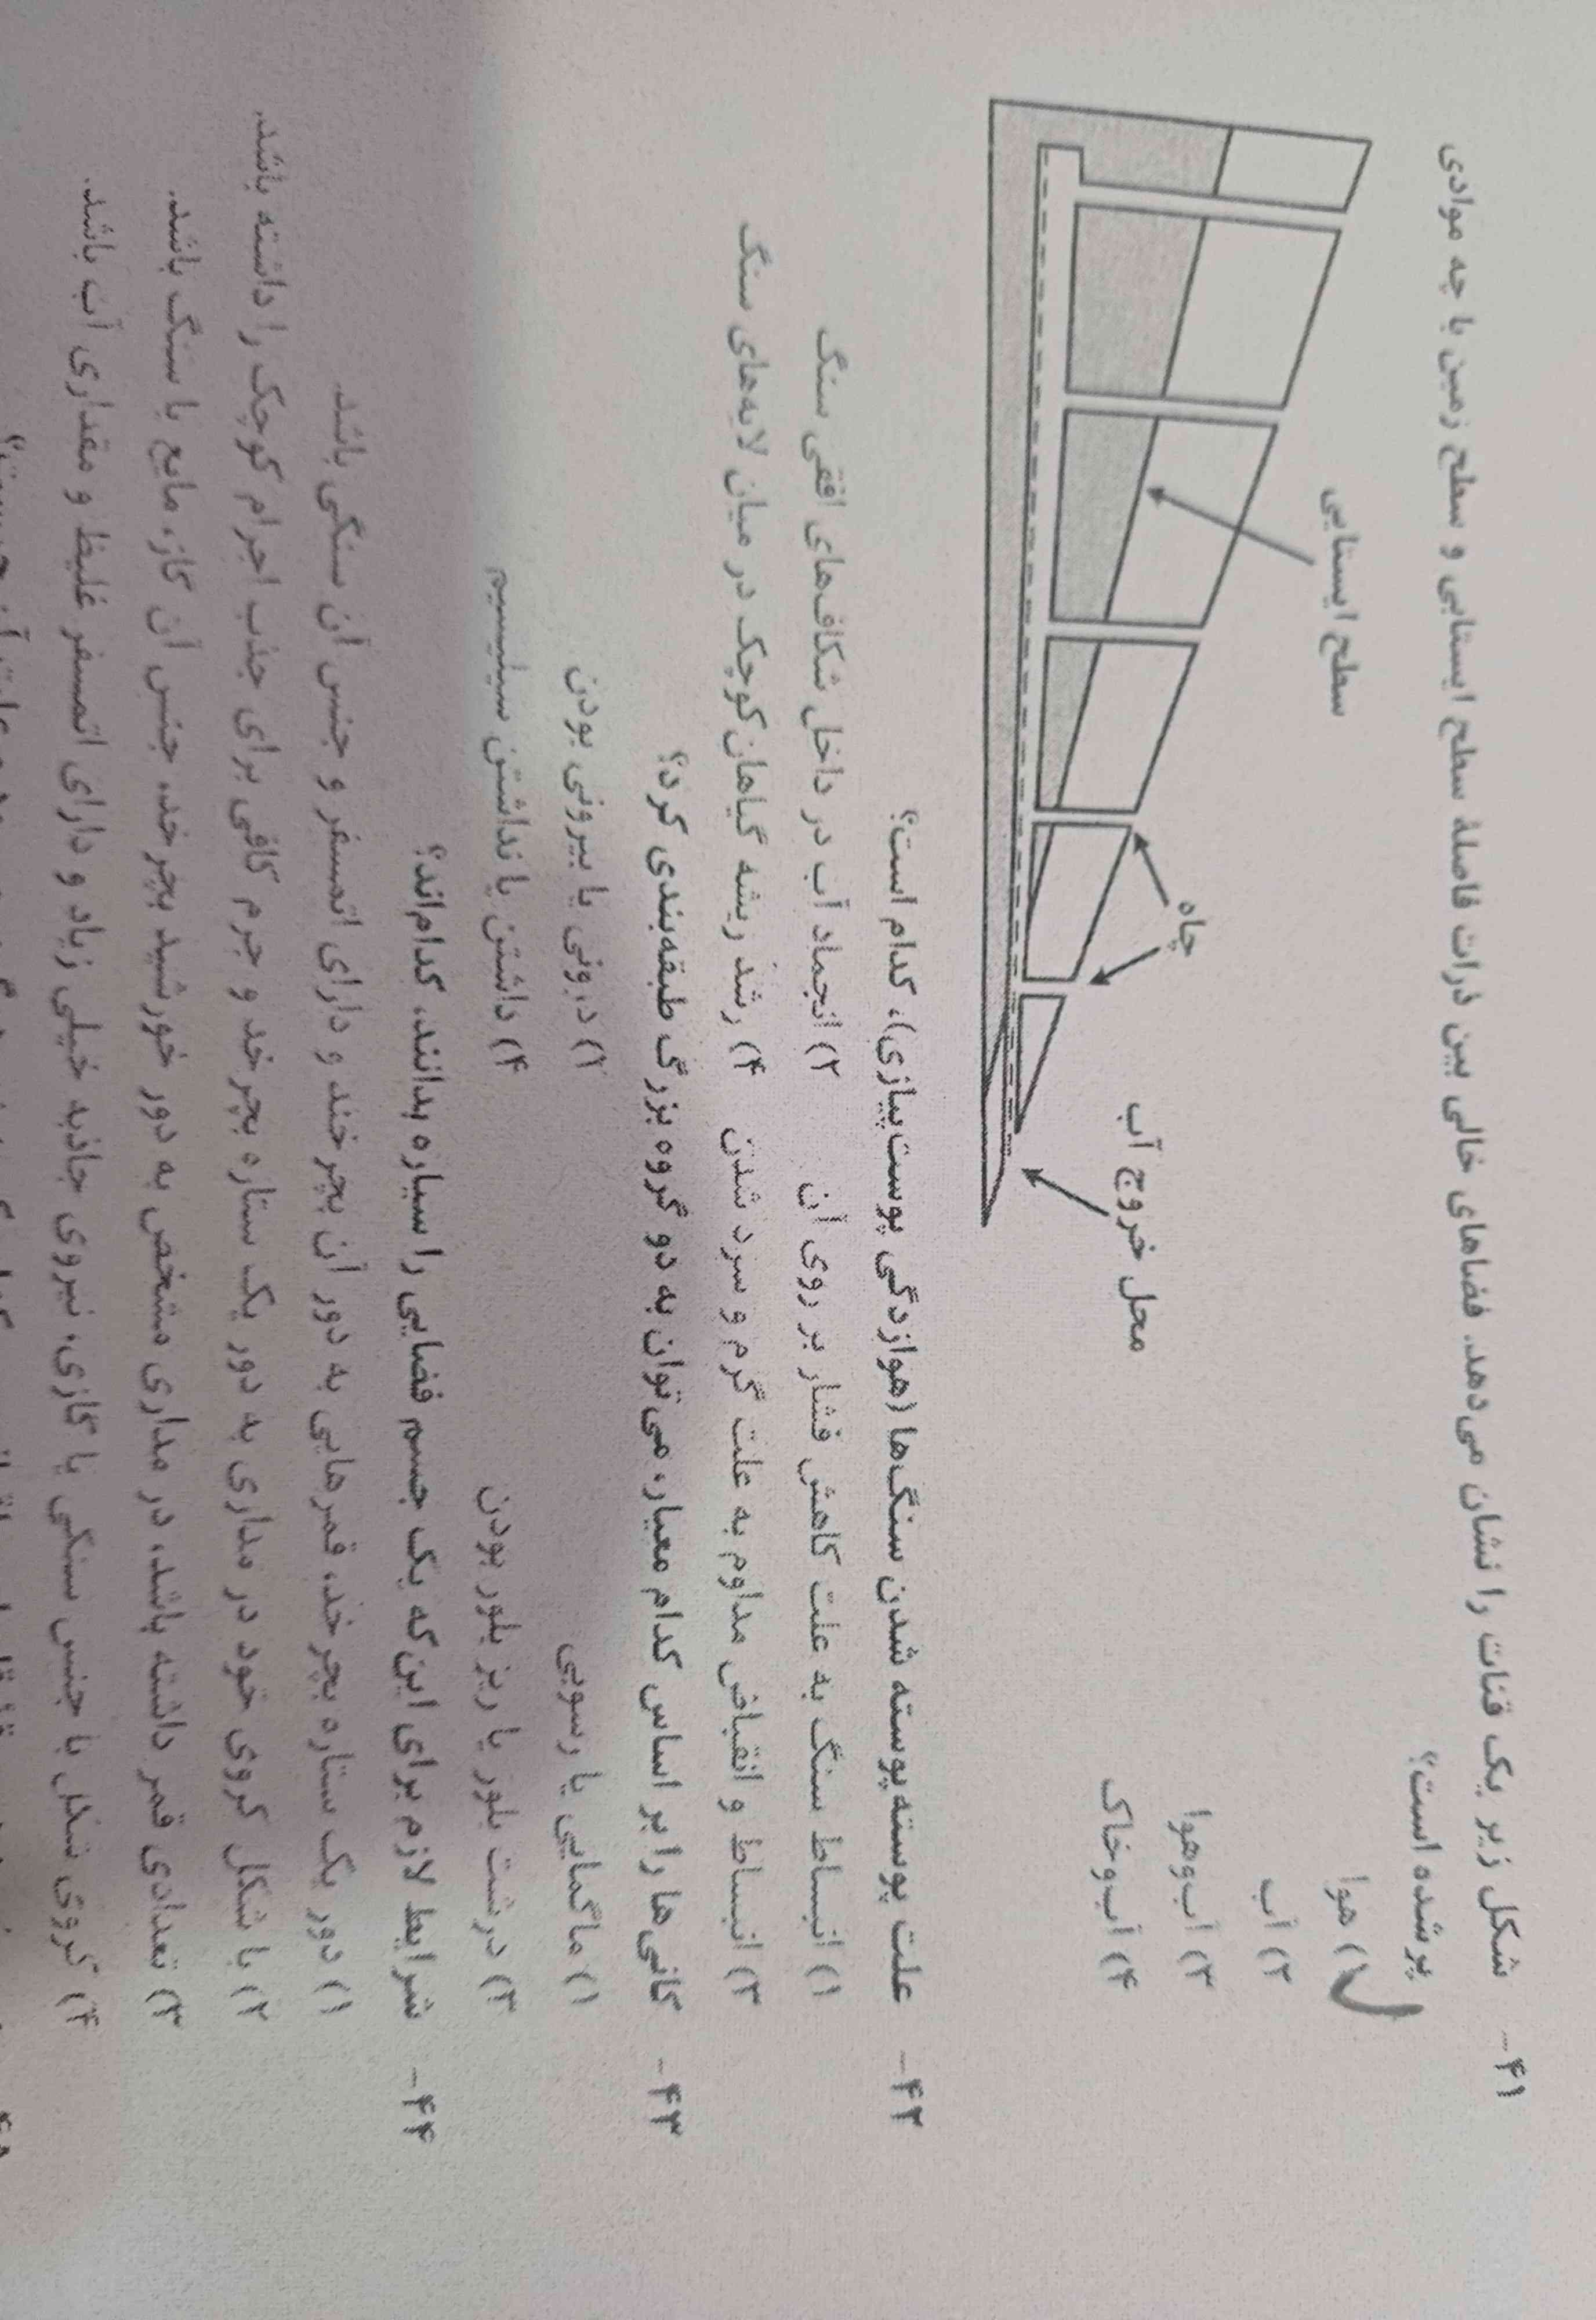 ۴۱- شکل زیر یک قنات را نشان می‌دهد. فضاهای خالی بین ذرات فاصلهٔ سطح ایستابی و سطح زمین با چه موادی
پر شده است؟
۱) هوا
۲) آب
۳) آب‌وهوا
۴) آب‌وخاک
سطح ایستابی
چاه
محل خروج آب
۴۲- علت پوسته‌پوسته شدن سنگ‌ها (هوازدگی پوست‌پیازی)، کدام است؟
۱) انبساط سنگ به علت کاهش فشار بر روی آن ۲) انجماد آب در داخل شکاف‌های افقی سنگ
۳) انبساط و انقباض مداوم به علت گرم و سرد شدن ۴) رشد ریشه گیاهان کوچک در میان لایه‌های سنگ
۴۳- کانی‌ها را بر اساس کدام معیار، می‌توان به دو گروه بزرگ طبقه‌بندی کرد؟
۱) ماگمایی یا رسوبی ۲) درونی یا بیرونی بودن
۳) درشت بلور یا ریز بلور بودن ۴) داشتن یا نداشتن سیلیسیم
۴۴- شرایط لازم برای این‌که یک جسم فضایی را سیاره بدانند، کدام‌اند؟
۱) دور یک ستاره بچرخد، قمرهایی به دور آن بچرخند و دارای اتمسفر و جنس آن سنگی باشد.
۲) با شکل کروی خود در مداری به دور یک ستاره بچرخد و جرم کافی برای جذب اجرام کوچک را داشته باشد.
۳) تعدادی قمر داشته باشد، در مداری مشخص به دور خورشید بچرخد، جنس آن گاز، مایع یا سنگ باشد.
۴) کروی شکل با جنس سنگی یا گازی، نیروی جاذبه خیلی زیاد و دارای اتمسفر غلیظ و مقداری آب باشد.